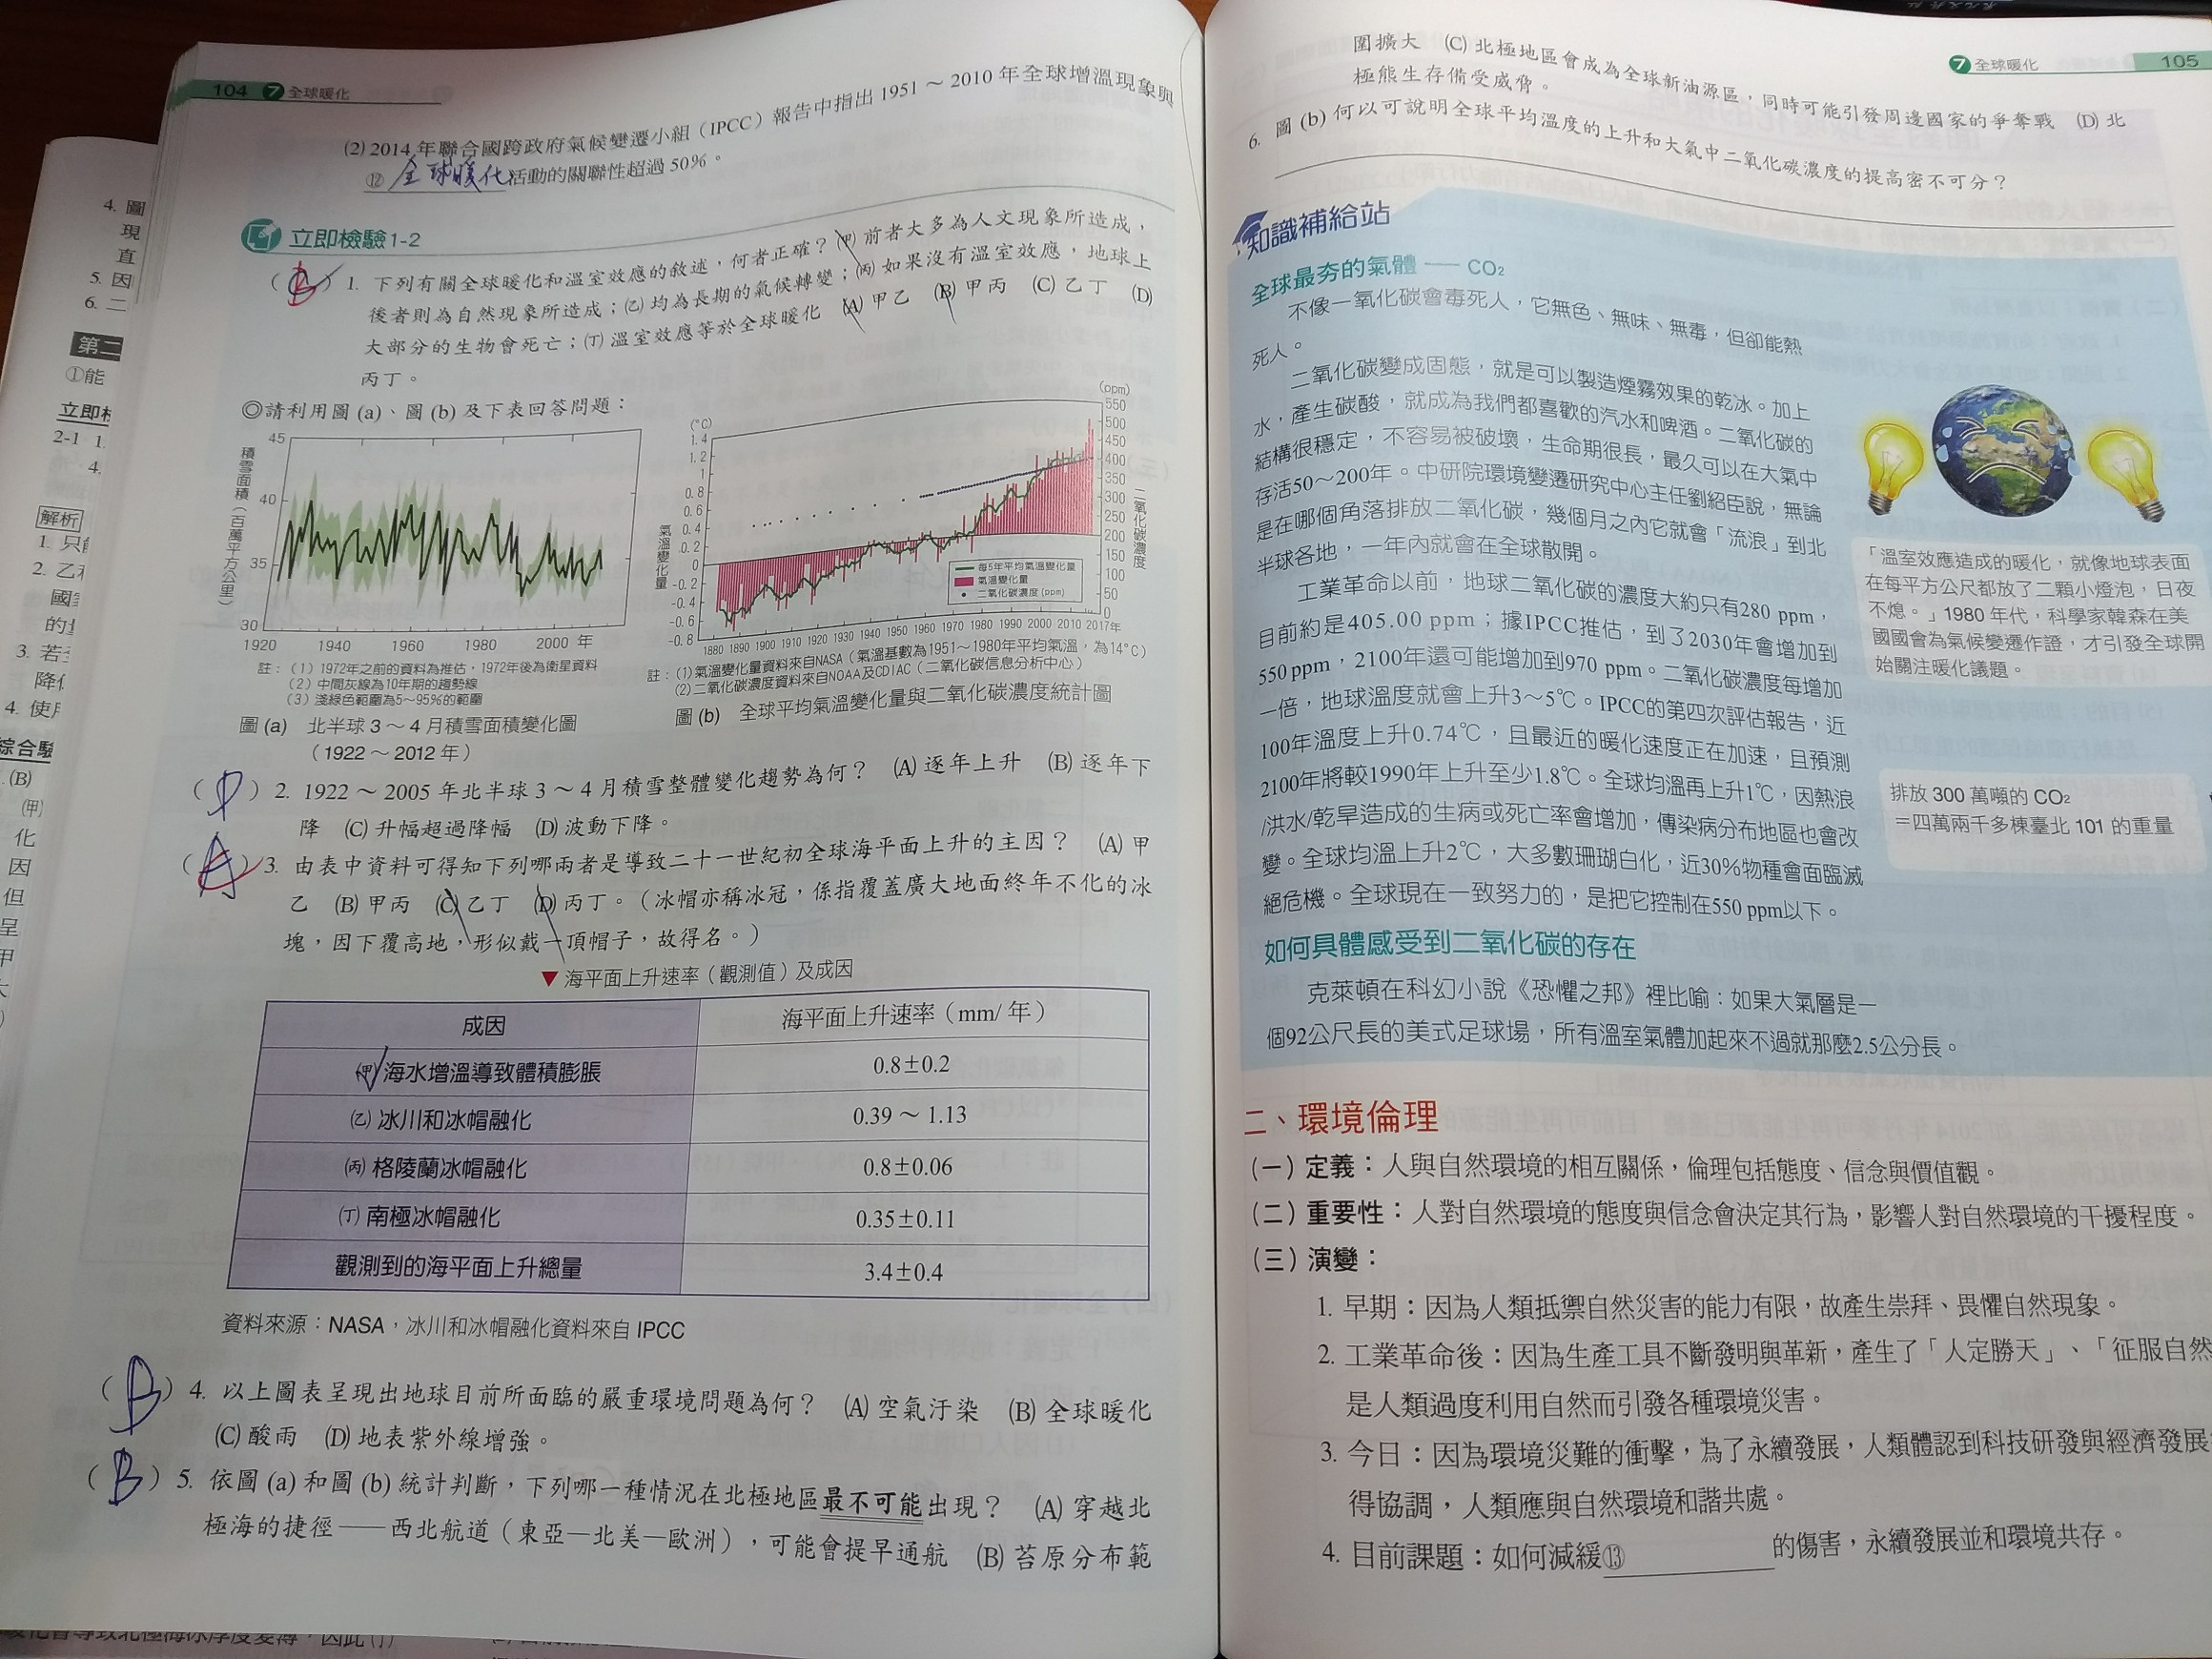 104 7 全球暖化
(2) 2014 年聯合國跨政府氣候變遷小組（IPCC）報告中指出 1951 ～ 2010 年全球增溫現象與
⑫ 全球暖化 活動的關聯性超過 50%。
立即檢驗1-2
1. 下列有關全球暖化和溫室效應的敘述，何者正確？(甲) 前者大多為人文現象所造成，
後者則為自然現象所造成；(乙) 均為長期的氣候轉變；(丙) 如果沒有溫室效應，地球上
大部分的生物會死亡；(丁) 溫室效應等於全球暖化 (A) 甲乙 (B) 甲丙 (C) 乙丁 (D)
丙丁。
◎請利用圖 (a)、圖 (b) 及下表回答問題：
積雪面積（百萬平方公里）
45
40
35
30
1920 1940 1960 1980 2000 年
註：（1）1972年之前的資料為推估，1972年後為衛星資料
（2）中間灰線為10年期的趨勢線
（3）淺綠色範圍為5～95%的範圍
圖 (a) 北半球 3 ～ 4 月積雪面積變化圖
（1922 ～ 2012 年）
(°C)
1.4
1.2
1
0.8
0.6
0.4
0.2
0
-0.2
-0.4
-0.6
-0.8
氣溫變化量
(ppm)
550
500
450
400
350
300
250
200
150
100
50
0
二氧化碳濃度
每5年平均氣溫變化量
氣溫變化量
二氧化碳濃度 (ppm)
1880 1890 1900 1910 1920 1930 1940 1950 1960 1970 1980 1990 2000 2010 2017年
註：(1)氣溫變化量資料來自NASA（氣溫基數為1951～1980年平均氣溫，為14°C）
(2)二氧化碳濃度資料來自NOAA及CDIAC（二氧化碳信息分析中心）
圖 (b) 全球平均氣溫變化量與二氧化碳濃度統計圖
（ D ）2. 1922 ～ 2005 年北半球 3 ～ 4 月積雪整體變化趨勢為何？ (A) 逐年上升 (B) 逐年下
降 (C) 升幅超過降幅 (D) 波動下降。
（ A ）3. 由表中資料可得知下列哪兩者是導致二十一世紀初全球海平面上升的主因？ (A) 甲
乙 (B) 甲丙 (C) 乙丁 (D) 丙丁。（冰帽亦稱冰冠，係指覆蓋廣大地面終年不化的冰
塊，因下覆高地，形似戴一頂帽子，故得名。）
▼ 海平面上升速率（觀測值）及成因
成因 海平面上升速率（mm/ 年）
(甲) 海水增溫導致體積膨脹 0.8±0.2
(乙) 冰川和冰帽融化 0.39 ～ 1.13
(丙) 格陵蘭冰帽融化 0.8±0.06
(丁) 南極冰帽融化 0.35±0.11
觀測到的海平面上升總量 3.4±0.4
資料來源：NASA，冰川和冰帽融化資料來自 IPCC
（ B ）4. 以上圖表呈現出地球目前所面臨的嚴重環境問題為何？ (A) 空氣汙染 (B) 全球暖化
(C) 酸雨 (D) 地表紫外線增強。
（ B ）5. 依圖 (a) 和圖 (b) 統計判斷，下列哪一種情況在北極地區最不可能出現？ (A) 穿越北
極海的捷徑——西北航道（東亞—北美—歐洲），可能會提早通航 (B) 苔原分布範
7 全球暖化 105
圍擴大 (C) 北極地區會成為全球新油源區，同時可能引發周邊國家的爭奪戰 (D) 北
極熊生存備受威脅。
6. 圖 (b) 何以可說明全球平均溫度的上升和大氣中二氧化碳濃度的提高密不可分？
知識補給站
全球最夯的氣體 —— CO₂
不像一氧化碳會毒死人，它無色、無味、無毒，但卻能熱
死人。
二氧化碳變成固態，就是可以製造煙霧效果的乾冰。加上
水，產生碳酸，就成為我們都喜歡的汽水和啤酒。二氧化碳的
結構很穩定，不容易被破壞，生命期很長，最久可以在大氣中
存活50～200年。中研院環境變遷研究中心主任劉紹臣說，無論
是在哪個角落排放二氧化碳，幾個月之內它就會「流浪」到北
半球各地，一年內就會在全球散開。
工業革命以前，地球二氧化碳的濃度大約只有280 ppm，
目前約是405.00 ppm；據IPCC推估，到了2030年會增加到
550 ppm，2100年還可能增加到970 ppm。二氧化碳濃度每增加
一倍，地球溫度就會上升3～5℃。IPCC的第四次評估報告，近
100年溫度上升0.74℃，且最近的暖化速度正在加速，且預測
2100年將較1990年上升至少1.8℃。全球均溫再上升1℃，因熱浪
/洪水/乾旱造成的生病或死亡率會增加，傳染病分布地區也會改
變。全球均溫上升2℃，大多數珊瑚白化，近30%物種會面臨滅
絕危機。全球現在一致努力的，是把它控制在550 ppm以下。
「溫室效應造成的暖化，就像地球表面
在每平方公尺都放了二顆小燈泡，日夜
不熄。」1980 年代，科學家韓森在美
國國會為氣候變遷作證，才引發全球開
始關注暖化議題。
排放 300 萬噸的 CO₂
＝四萬兩千多棟臺北 101 的重量
如何具體感受到二氧化碳的存在
克萊頓在科幻小說《恐懼之邦》裡比喻：如果大氣層是一
個92公尺長的美式足球場，所有溫室氣體加起來不過就那麼2.5公分長。
二、環境倫理
（一）定義：人與自然環境的相互關係，倫理包括態度、信念與價值觀。
（二）重要性：人對自然環境的態度與信念會決定其行為，影響人對自然環境的干擾程度。
（三）演變：
1. 早期：因為人類抵禦自然災害的能力有限，故產生崇拜、畏懼自然現象。
2. 工業革命後：因為生產工具不斷發明與革新，產生了「人定勝天」、「征服自然
是人類過度利用自然而引發各種環境災害。
3. 今日：因為環境災難的衝擊，為了永續發展，人類體認到科技研發與經濟發展
得協調，人類應與自然環境和諧共處。
4. 目前課題：如何減緩⑬ 的傷害，永續發展並和環境共存。